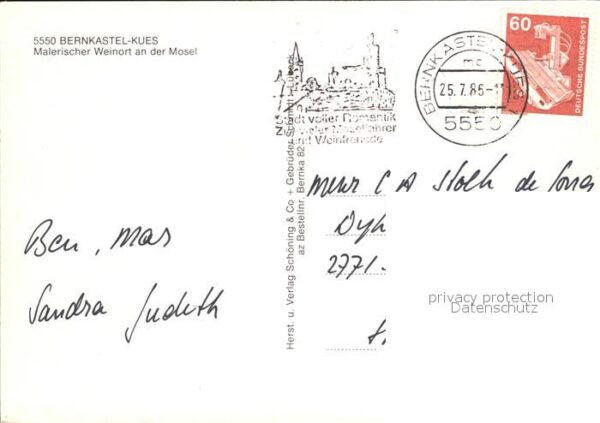 5550 BERNKASTEL-KUES
Malerischer Weinort an der Mosel
Stadt voller Romantik
Ziel vieler Moselfahrer
und Weinfreunde
BERNKASTEL-KUES 1
mc
25.7.86-17
5550
60
DEUTSCHE BUNDESPOST
Herst. u. Verlag Schöning & Co + Gebrüder Schmidt
az Bestellnr. Bernka 82
Ben, Mar
Sandra Judith
C A Stolk de
2771
privacy protection
Datenschutz